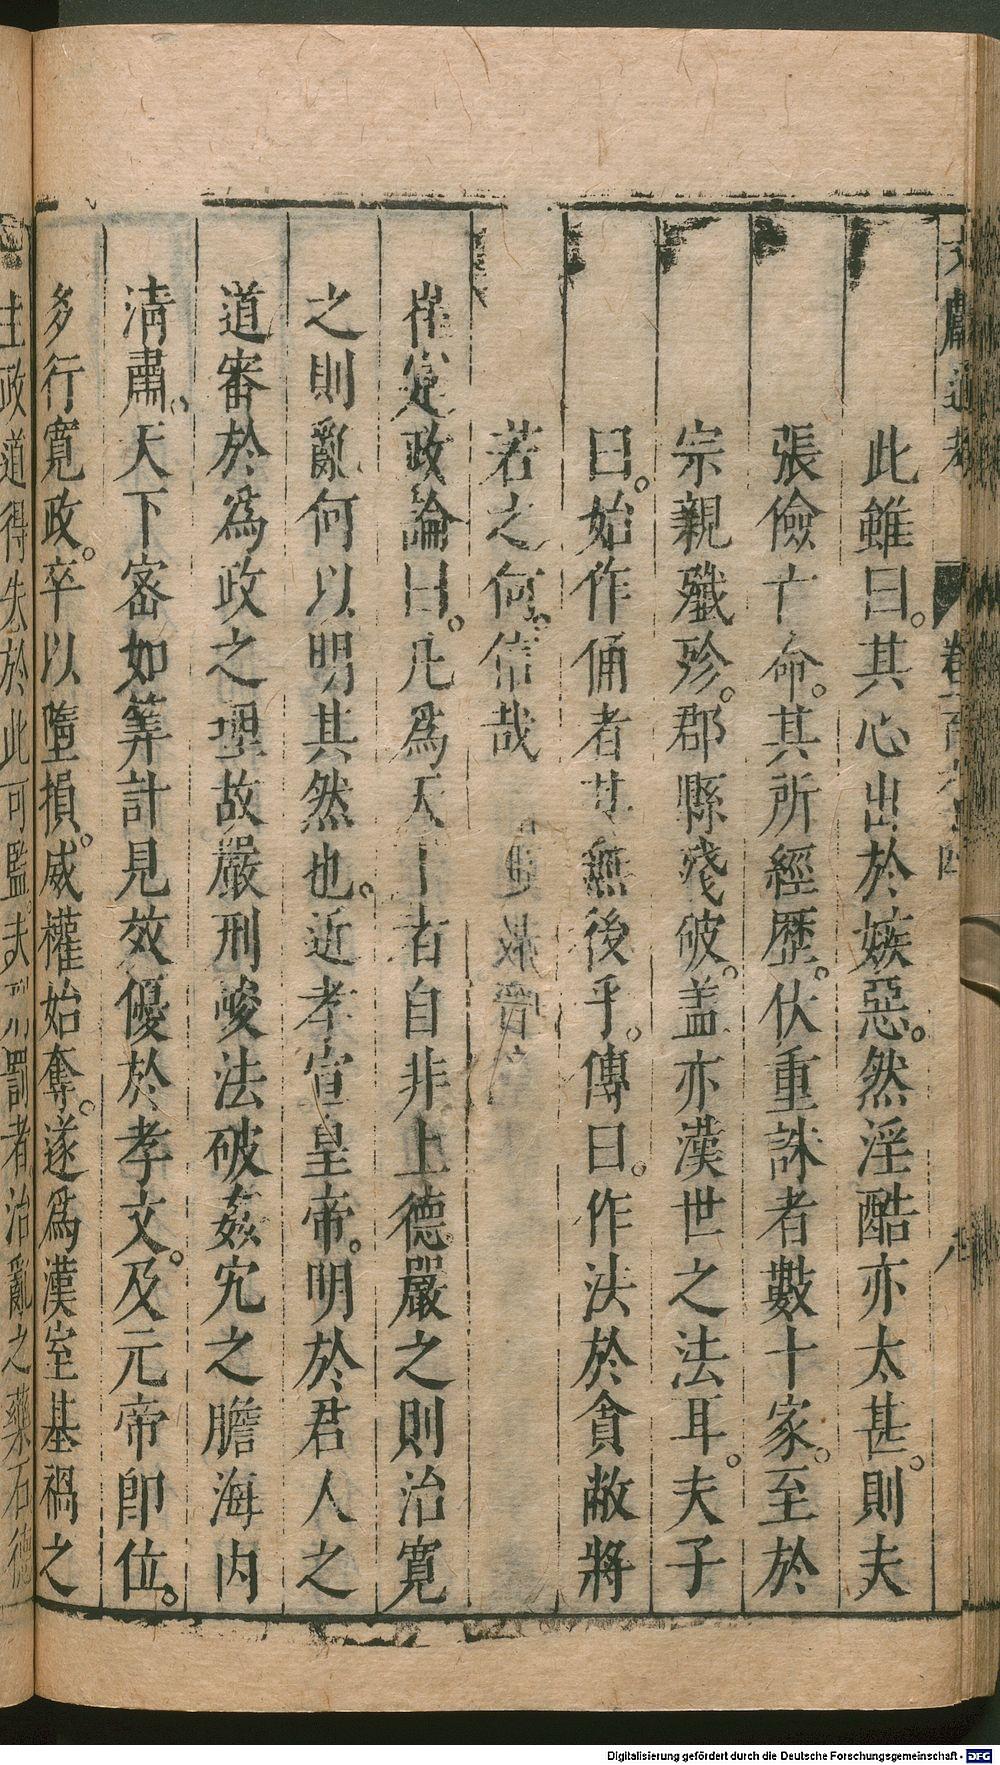 文獻通考 卷一百六十四 八
此雖曰。其心出於嫉惡。然淫酷亦太甚。則夫
張儉亡命。其所經歷。伏重誅者數十家。至於
宗親殲殄。郡縣殘破。盖亦漢世之法耳。夫子
曰。始作俑者其無後乎。傳曰。作法於貪敝將
若之何。信哉
崔寔政論曰。凡爲天下者自非上德嚴之則治寛
之則亂何以明其然也。近孝宣皇帝。明於君人之
道審於爲政之理故嚴刑峻法破姦宄之膽海内
淸肅。天下密如筭計見效優於孝文。及元帝卽位。
多行寛政。卒以墮損。威權始奪。遂爲漢室基禍之
主政道得失於此可監。夫刑罰者治亂之藥石德
Digitalisierung gefördert durch die Deutsche Forschungsgemeinschaft - DFG